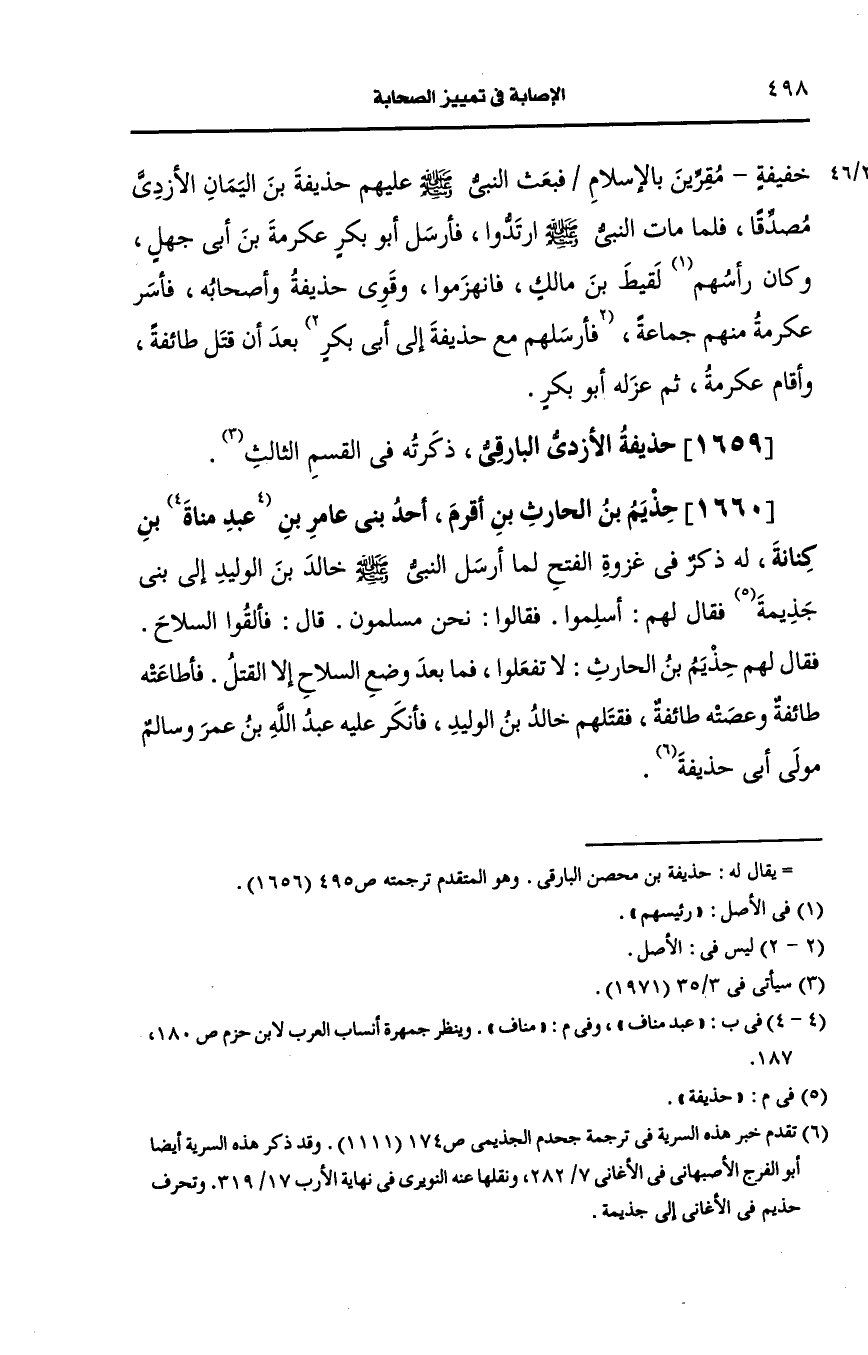 ٤٩٨
الإصابة فى تمييز الصحابة
٤٦/٢ خفيفةٍ – مُقِرِّينَ بالإسلامِ / فبعَث النبىُّ ﷺ عليهم حذيفةَ بنَ اليَمَانِ الأزدِىَّ
مُصدِّقًا ، فلما مات النبىُّ ﷺ ارتَدُّوا ، فأرسَل أبو بكرٍ عكرمةَ بنَ أبى جهلٍ ،
وكان رأسُهم(١) لَقيطَ بنَ مالكٍ ، فانهزَموا ، وقَوِى حذيفةُ وأصحابُه ، فأسَر
عكرمةُ منهم جماعةً ، (٢فأرسَلهم مع حذيفةَ إلى أبى بكرٍ٢) بعدَ أن قتَل طائفةً ،
وأقام عكرمةُ ، ثم عزَله أبو بكرٍ .
[١٦٥٩] حذيفةُ الأزدىُّ البارقِىُّ ، ذكَرتُه فى القسمِ الثالثِ(٣) .
[١٦٦٠] حِذْيَمُ بنُ الحارثِ بنِ أقرمَ ، أحدُ بنى عامرِ بنِ (٤عبدِ مناةَ٤) بنِ
كِنانةَ ، له ذكرٌ فى غزوةِ الفتحِ لما أرسَل النبىُّ ﷺ خالدَ بنَ الوليدِ إلى بنى
جَذِيمةَ(٥) فقال لهم : أسلِموا . فقالوا : نحن مسلمون . قال : فألقُوا السلاحَ .
فقال لهم حِذْيَمُ بنُ الحارثِ : لا تفعَلوا ، فما بعدَ وضعِ السلاحِ إلا القتلُ . فأطاعَتْه
طائفةٌ وعصَتْه طائفةٌ ، فقتَلهم خالدُ بنُ الوليدِ ، فأنكَر عليه عبدُ اللَّهِ بنُ عمرَ وسالمٌ
مولَى أبى حذيفةَ(٦) .
= يقال له : حذيفة بن محصن البارقى . وهو المتقدم ترجمته ص٤٩٥ (١٦٥٦) .
(١) فى الأصل : « رئيسهم » .
(٢ – ٢) ليس فى : الأصل .
(٣) سيأتى فى ٣٥/٣ (١٩٧١) .
(٤ – ٤) فى ب : « عبد مناف » ، وفى م : « مناف » . وينظر جمهرة أنساب العرب لابن حزم ص ١٨٠،
١٨٧.
(٥) فى م : « حذيفة » .
(٦) تقدم خبر هذه السرية فى ترجمة جحدم الجذيمى ص١٧٤ (١١١١) . وقد ذكر هذه السرية أيضا
أبو الفرج الأصبهانى فى الأغانى ٧/ ٢٨٢، ونقلها عنه النويرى فى نهاية الأرب ١٧/ ٣١٩. وتحرف
حذيم فى الأغانى إلى جذيمة .